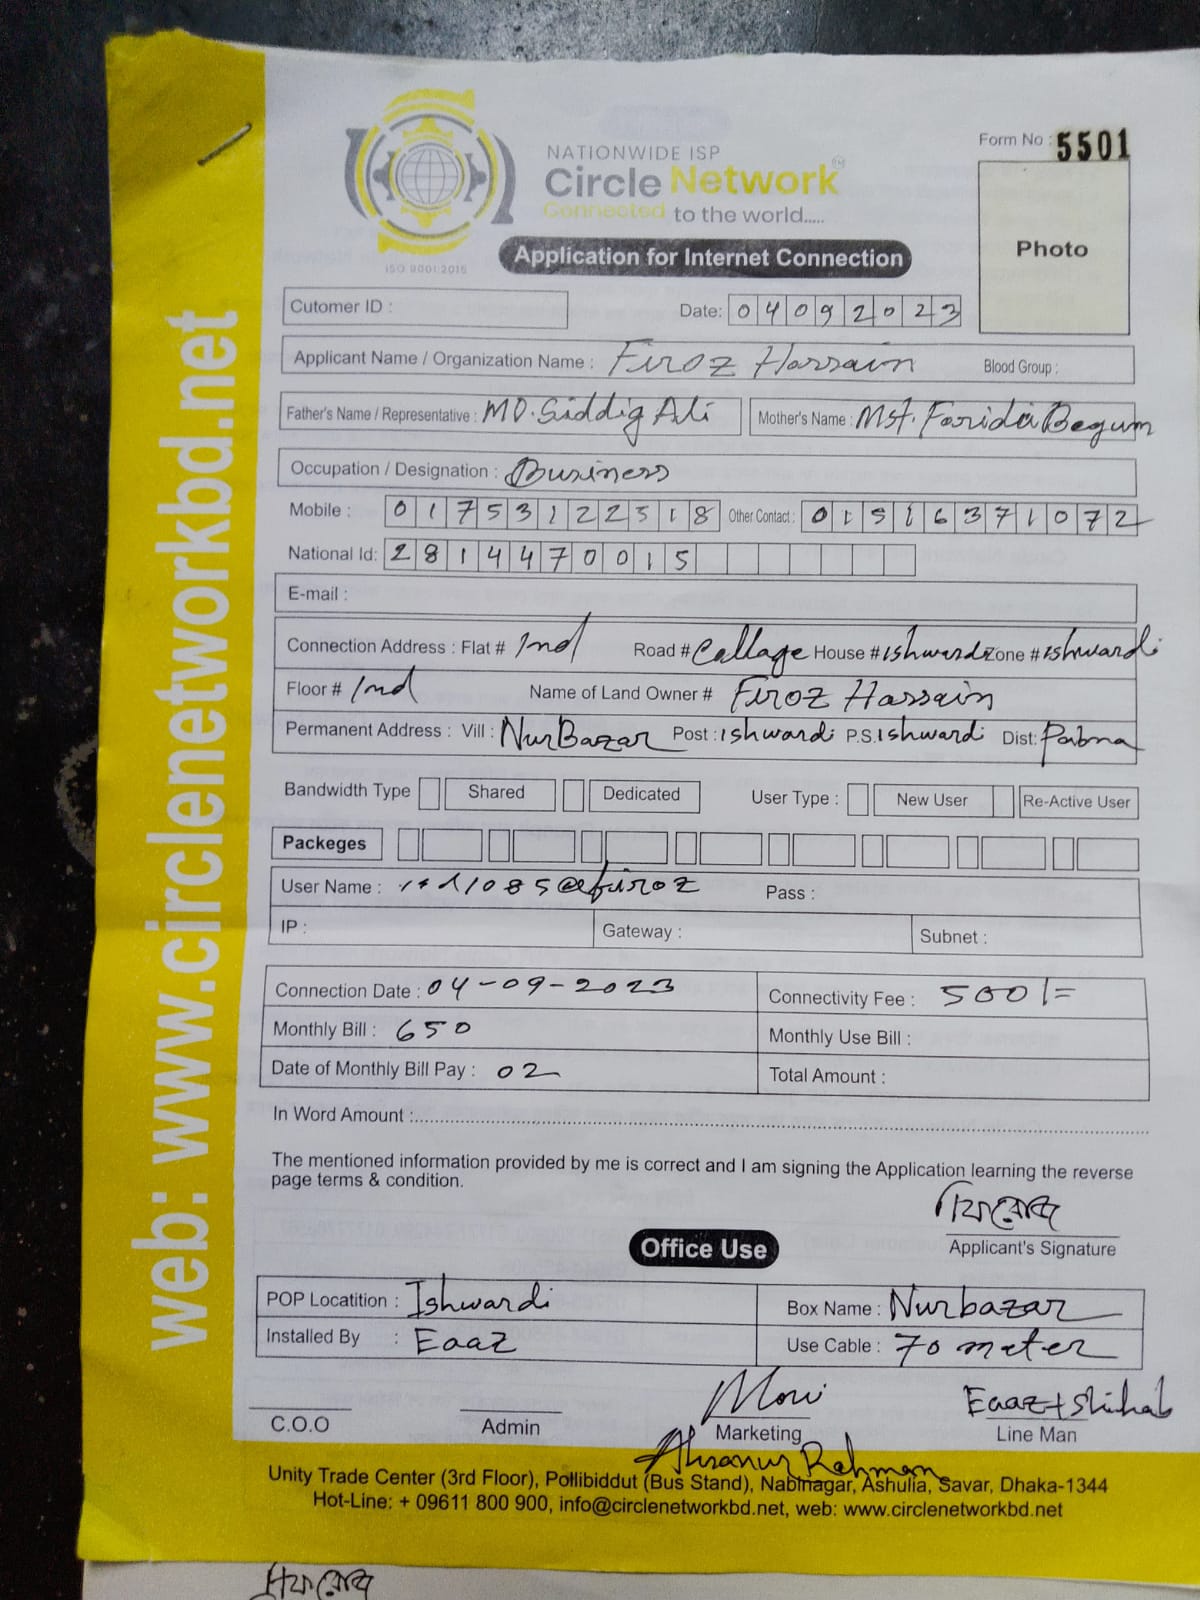 Form No : 5501
NATIONWIDE ISP
Circle Network
Connected to the world.....
ISO 9001:2015
Application for Internet Connection
Photo
Cutomer ID :
Date: 04092023
Applicant Name / Organization Name : Firoz Hossain Blood Group :
Father's Name / Representative : MD. Siddig Ali Mother's Name : Mst. Farida Begum
Occupation / Designation : Business
Mobile : 01753122318 Other Contact : 01516371072
National Id: 2814470015
E-mail :
Connection Address : Flat # Road # Collage House # ishwardi Zone # ishwardi
Floor # Name of Land Owner # Firoz Hossain
Permanent Address : Vill : NurBazar Post : ishwardi P.S. ishwardi Dist: Pabna
Bandwidth Type Shared Dedicated User Type : New User Re-Active User
Packeges
User Name : Pass :
IP : Gateway : Subnet :
Connection Date : 04-09-2023 Connectivity Fee : 500/=
Monthly Bill : 650 Monthly Use Bill :
Date of Monthly Bill Pay : 02 Total Amount :
In Word Amount :
The mentioned information provided by me is correct and I am signing the Application learning the reverse
page terms & condition.
ফিরোজ
Applicant's Signature
Office Use
POP Locatition : Ishwardi Box Name : Nurbazar
Installed By : Eaaz Use Cable : 70 meter
Eaaz + Shihab
C.O.O Admin Marketing Line Man
Ahsanur Rahman
Unity Trade Center (3rd Floor), Pollibiddut (Bus Stand), Nabinagar, Ashulia, Savar, Dhaka-1344
Hot-Line: + 09611 800 900, info@circlenetworkbd.net, web: www.circlenetworkbd.net
web: www.circlenetworkbd.net
ফিরোজ